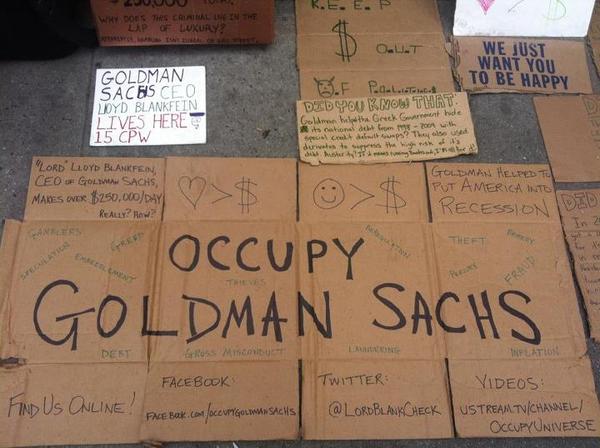 $250,000
WHY DOES THIS CRIMINAL LIVE IN THE
LAP OF LUXURY?
K. E. E. P
$ O.U.T
O.F P.O.L.I.T.I.C.S
♡ $
WE JUST
WANT YOU
TO BE HAPPY
GOLDMAN
SACHS CEO
LLOYD BLANKFEIN
LIVES HERE
15 CPW
DID YOU KNOW THAT:
Goldman helped the Greek Government hide
its national debt from 1998 - 2009 with
special credit default swaps? They also used
derivates to suppress the high risk of it's
debt.
"LORD" LLOYD BLANKFEIN,
CEO OF GOLDMAN SACHS,
MAKES OVER $250,000/DAY
REALLY? HOW?
♡ > $
☺ > $
GOLDMAN HELPED TO
PUT AMERICA INTO
RECESSION
DID
In 2
GAMBLERS
SPECULATION
GREED
EMBEZZLEMENT
THEFT
BRIBERY
PERJURY
FRAUD
OCCUPY
THIEVES
GOLDMAN SACHS
DEBT
GROSS MISCONDUCT
LAUNDERING
INFLATION
FIND US ONLINE!
FACEBOOK:
FACEBOOK.COM/OCCUPYGOLDMANSACHS
TWITTER:
@LORDBLANKCHECK
VIDEOS:
USTREAM.TV/CHANNEL/
OCCUPYUNIVERSE